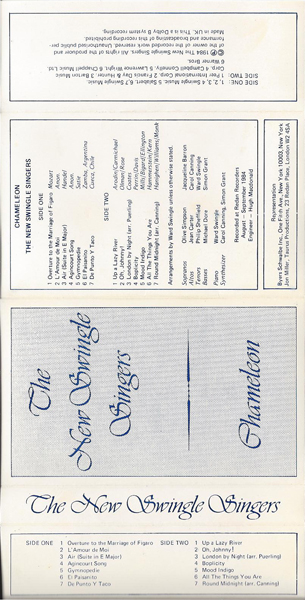 SIDE ONE: 1, 2, 3, 4 Swingle Music, 5, 6, 7 Salabert. Swingle Music.
SIDE TWO: 1 Peer International Corp. 2 Francis Day & Hunter. 3 Barton Music
Corp. 4 Campbell Connelly. 5 Lawrence Wright. 6 Chappell Music Ltd.
7 Warner Bros.
Ⓟ© 1984 The New Swingle Singers. All rights of the producer and
of the owner of the recorded work reserved. Unauthorised public per-
formance and broadcasting of this recording prohibited.
Made in UK. This is a Dolby B system recording.
CHAMELEON
THE NEW SWINGLE SINGERS
SIDE ONE
1 Overture to the Marriage of Figaro Mozart
2 L'Amour de Moi Anon.
3 Air (Suite in E Major) Handel
4 Agincourt Song Anon.
5 Gymnopedie Satie
6 El Paisanito Zamba, Argentina
7 De Punto Y Taco Cueca, Chile
SIDE TWO
1 Up a Lazy River Arodin/Carmichael
2 Oh, Johnny! Olman/Rose
3 London by Night (arr. Puerling) Coates
4 Boplicity Perrin/Davis
5 Mood Indigo Mills/Bigard/Ellington
6 All The Things You Are Hammerstein/Kern
7 Round Midnight (arr. Canning) Hanighen/Williams/Monk
Arrangements by Ward Swingle unless otherwise stated.
Sopranos Olive Simpson Jacqueline Barron
Altos Jean Carter Carol Canning
Tenors Philip Sheffield Ward Swingle
Basses Michael Dore Simon Grant
Piano Ward Swingle
Synthesizer Carol Canning, Simon Grant
Recorded at Redan Recorders
August – September 1984
Engineer – Hugh Macdonald
Representation
Byers Schwalbe Inc., One Fifth Avenue, New York 10003, New York
Jon Miller, Taurus Productions, 23 Redan Place, London W2 4SA
The
New Swingle
Singers
Chameleon
The New Swingle Singers
SIDE ONE
1 Overture to the Marriage of Figaro
2 L'Amour de Moi
3 Air (Suite in E Major)
4 Agincourt Song
5 Gymnopedie
6 El Paisanito
7 De Punto Y Taco
SIDE TWO
1 Up a Lazy River
2 Oh, Johnny!
3 London by Night (arr. Puerling)
4 Boplicity
5 Mood Indigo
6 All The Things You Are
7 Round Midnight (arr. Canning)